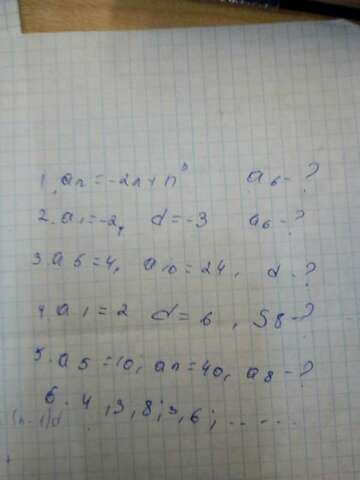 1. an = -2n + n³ a6 - ?
2. a1 = -2, d = -3 a6 - ?
3. a5 = 4, a10 = 24, d - ?
4. a1 = 2 d = 6, S8 - ?
5. a5 = 10, an = 40, a8 - ?
6. 4, 3, 8; 3, 6; .....
(n-1)d